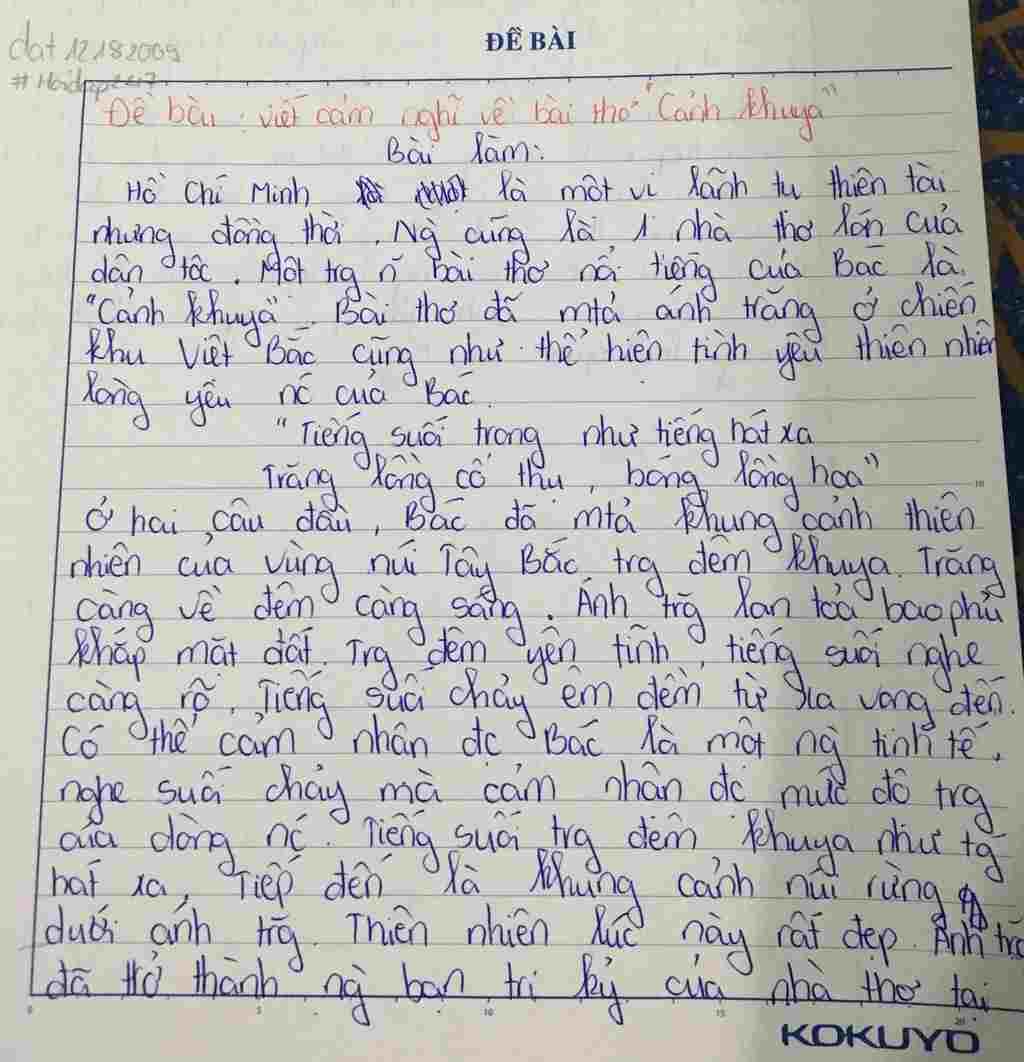 ĐỀ BÀI
dat 12182009
Đề bài: viết cảm nghĩ về bài thơ "Cảnh khuya"
Bài làm:
Hồ Chí Minh là một vị lãnh tụ thiên tài
nhưng đồng thời, Ng cũng là 1 nhà thơ lớn của
dân tộc. Một trg n bài thơ nổi tiếng của Bác là
"Cảnh khuya". Bài thơ đã mtả ánh trăng ở chiến
khu Việt Bắc cũng như thể hiện tình yêu thiên nhiên
lòng yêu nc của Bác.
"Tiếng suối trong như tiếng hát xa
Trăng lồng cổ thụ, bóng lồng hoa"
Ở hai câu đầu, Bác đã mtả khung cảnh thiên
nhiên của vùng núi Tây Bắc trg đêm khuya. Trăng
càng về đêm càng sáng. Ánh trg lan toả bao phủ
khắp mặt đất. Trg đêm yên tĩnh, tiếng suối nghe
càng rõ. Tiếng suối chảy êm đềm từ xa vọng đến.
Có thể cảm nhận đc Bác là một ng tinh tế,
nghe suối chảy mà cảm nhận đc mức độ trg
của dòng nc. Tiếng suối trg đêm khuya như tg
hát xa, Tiếp đến là khung cảnh núi rừng
dưới ánh trg. Thiên nhiên lúc này rất đẹp. Ánh trg
đã trở thành ng bạn tri kỷ của nhà thơ tại
0 5 10 15 20
KOKUYO